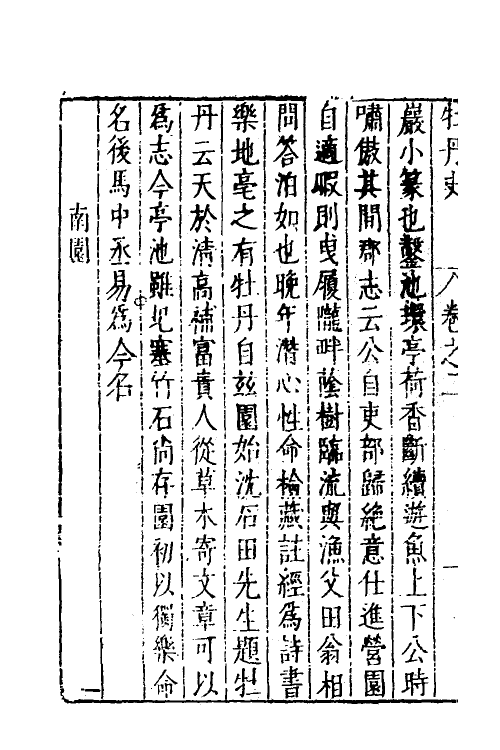 牡丹史　卷之二
巖小篆也鑿池環亭荷香斷續遊魚上下公時
嘯傲其間郡志云公自吏部歸絶意仕進營園
自適暇則曳履隴畔蔭樹臨流與漁父田翁相
問答泊如也晚年潛心性命檢藏註經爲詩書
樂地亳之有牡丹自玆園始沈石田先生題牡
丹云天於淸高補富貴人從草木寄文章可以
爲志今亭池雖圮塞竹石尚存園初以獨樂命
名後馬中丞易爲今名
南園